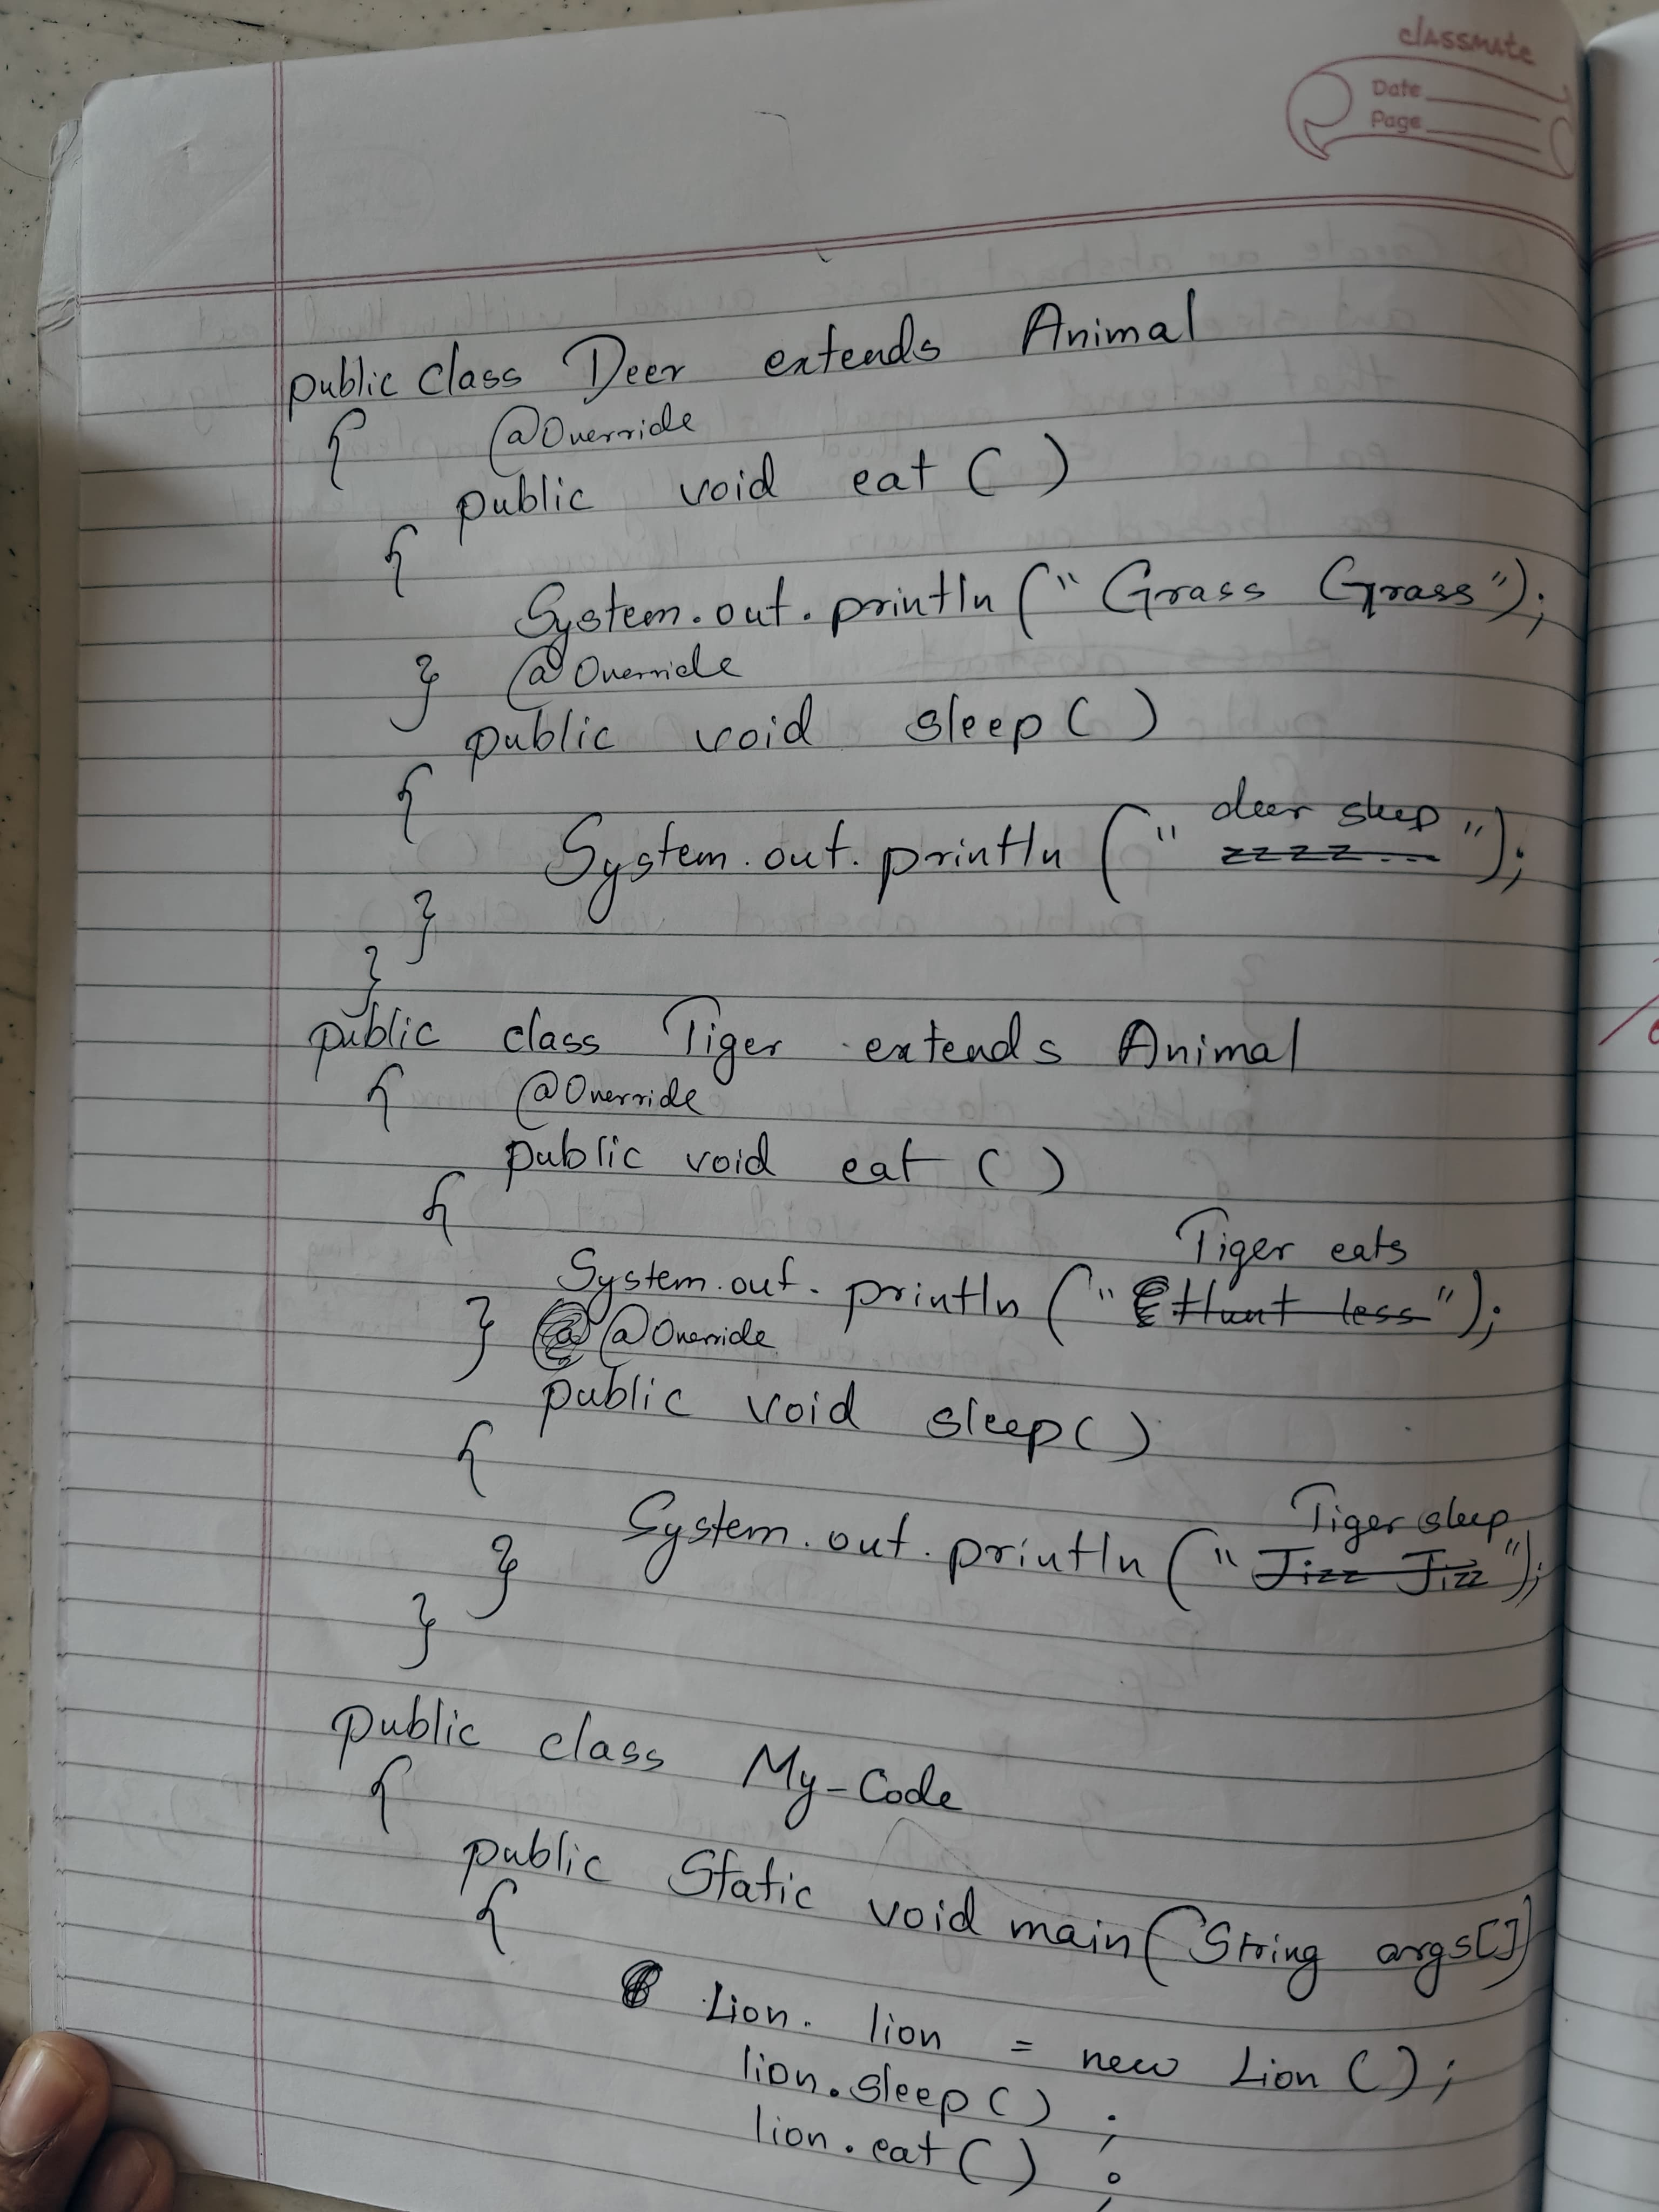 classmate
Date
Page
public class Deer extends Animal
{ @Override
public void eat ( )
{
System.out.println (" Grass Grass");
} @Override
public void sleep ( )
{
deer sleep
System.out.println (" zzzz... ");
}
}
public class Tiger extends Animal
{ @Override
public void eat ( )
{
Tiger eats
System.out.println (" Hunt less ");
} @Override
public void sleep ( )
{
Tiger sleep
System.out.println (" Jizz Jizz ");
}
}
public class My-Code
{
public Static void main(String args[])
{
Lion. lion = new Lion ( );
lion.sleep ( ) ;
lion.eat ( ) ;